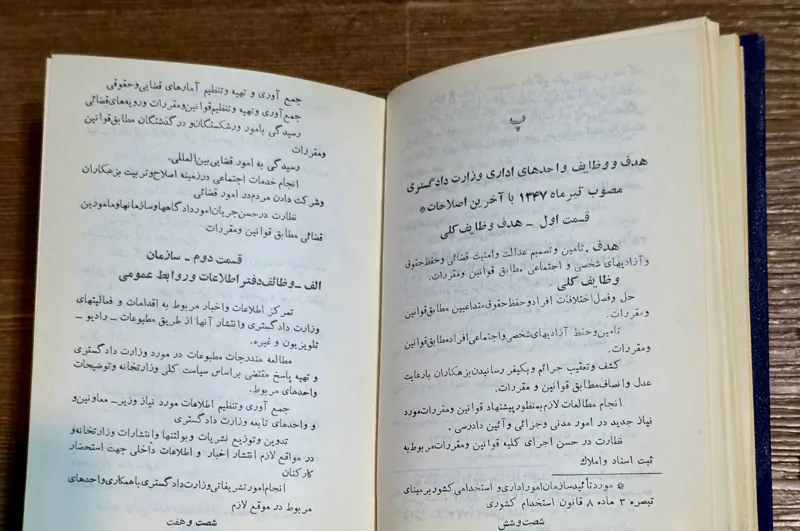 پ
هدف و وظایف واحدهای اداری وزارت دادگستری
مصوب تیرماه ۱۳۴۷ با آخرین اصلاحات*
قسمت اول ـ هدف وظایف کلی
هدف . تامین و تصمیم عدالت وامنیت قضائی وحفظ حقوق
و آزادیهای شخصی و اجتماعی مطابق قوانین و مقررات.
وظایف کلی .
حل و فصل اختلافات افراد و حفظ حقوق متداعیین مطابق قوانین
و مقررات.
تامین و حفظ آزادیهای شخصی و اجتماعی افراد مطابق قوانین
و مقررات.
کشف و تعقیب جرائم و بکیفر رسانیدن بزهکاران بارعایت
عدل و انصاف مطابق قوانین و مقررات.
انجام مطالعات لازم بمنظور پیشنهاد قوانین و مقررات مورد
نیاز جدید در امور مدنی و جزائی و آئین دادرسی .
نظارت در حسن اجرای کلیه قوانین و مقررات مربوط به
ثبت اسناد و املاک
* مورد تأئید سازمان امور اداری و استخدامی کشور بر مبنای
تبصره ۳ ماده ۸ قانون استخدام کشوری
شصت و شش
جمع آوری و تهیه و تنظیم آمارهای قضایی و حقوقی
جمع آوری و تهیه و تنظیم قوانین و مقررات و رویه‌های قضائی
رسیدگی بامور ورشکستگان و درگذشتگان مطابق قوانین
و مقررات
رسیدگی به امور قضایی بین‌المللی.
انجام خدمات اجتماعی در زمینه اصلاح و تربیت بزهکاران
و شرکت دادن مردم در امور قضائی
نظارت در حسن جریان امور دادگاهها و سازمانها و مامورین
قضائی مطابق قوانین و مقررات
قسمت دوم ـ سازمان
الف ـ وظائف دفتر اطلاعات و روابط عمومی
تمرکز اطلاعات و اخبار مربوط به اقدامات و فعالیتهای
وزارت دادگستری و انتشار آنها از طریق مطبوعات ـ رادیو ـ
تلویزیون و غیره.
مطالعه مندرجات مطبوعات در مورد وزارت دادگستری
و تهیه پاسخ مقتضی براساس سیاست کلی وزارتخانه و توضیحات
واحدهای مربوط.
جمع آوری و تنظیم اطلاعات مورد نیاز وزیر ـ معاونین و
و واحدهای تابعه وزارت دادگستری
تدوین و توزیع نشریات و بولتنها و انتشارات وزارتخانه و
در مواقع لازم انتشار اخبار و اطلاعات داخلی جهت استحضار
کارکنان
انجام امور تشریفاتی وزارت دادگستری با همکاری واحدهای
مربوط در موقع لازم
شصت و هفت